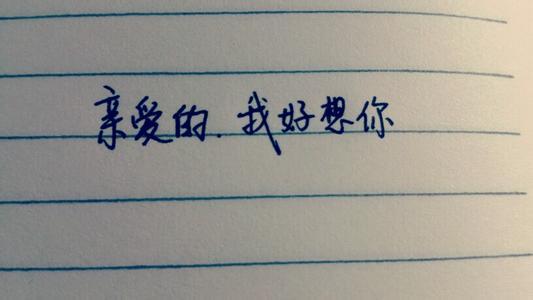 亲爱的.我好想你